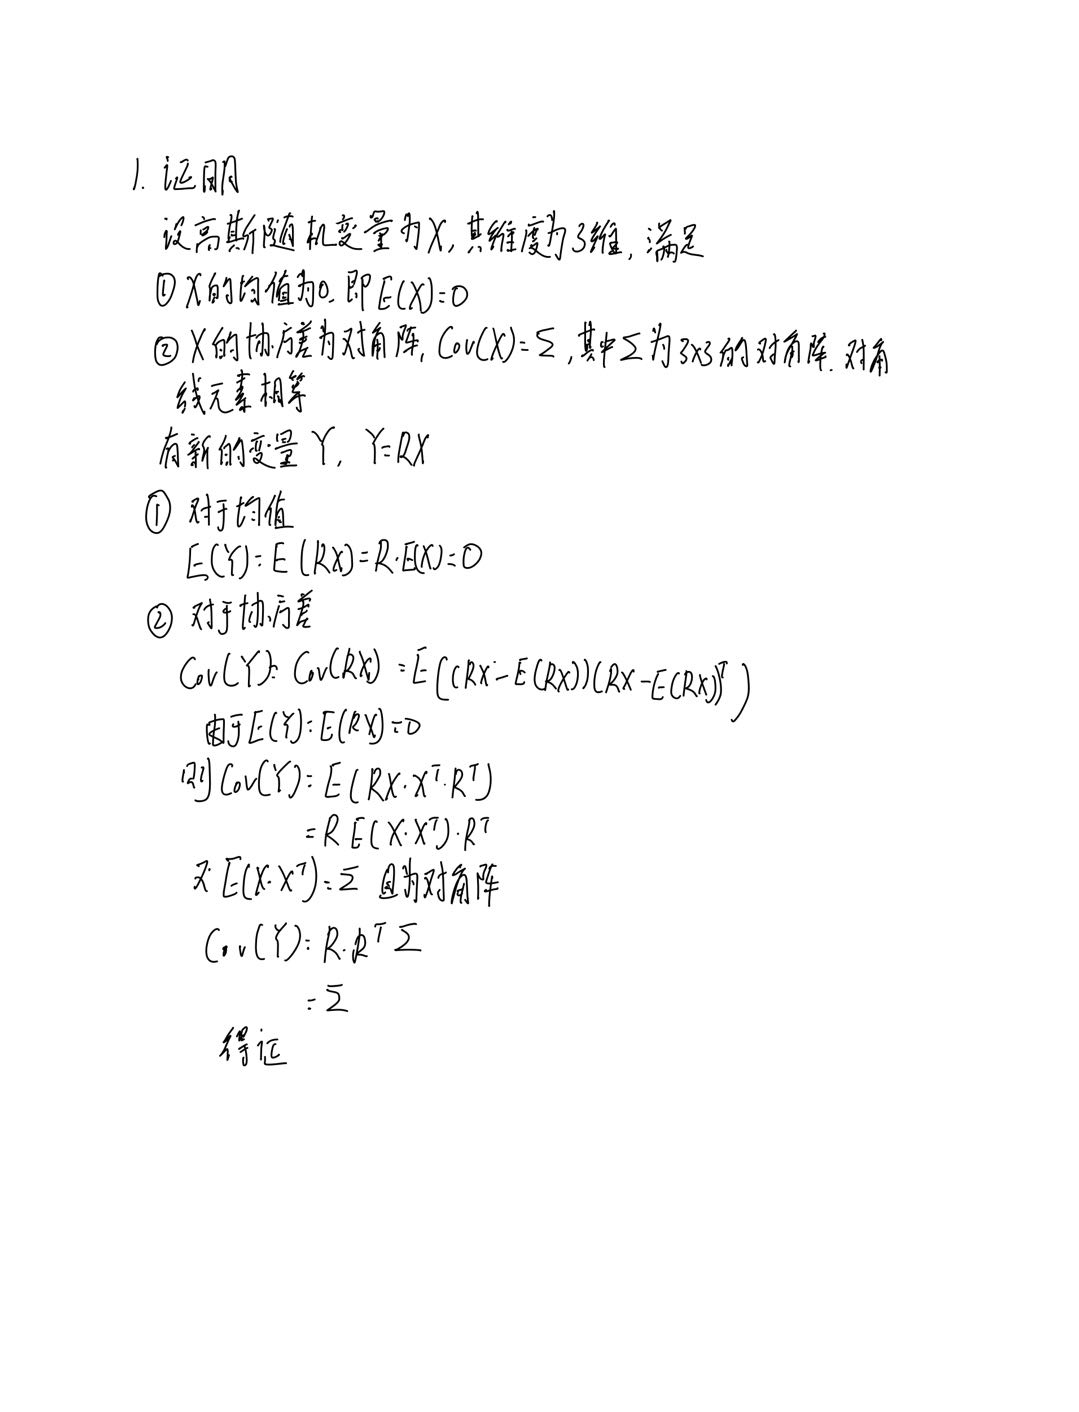 1. 证明
设高斯随机变量为X, 其维度为3维, 满足
① X的均值为0. 即E(X)=0
② X的协方差为对角阵, Cov(X)=Σ, 其中Σ为3x3的对角阵. 对角
线元素相等
有新的变量Y, Y=RX
① 对于均值
E(Y)=E(RX)=R·E(X)=0
② 对于协方差
Cov(Y)=Cov(RX)=E((RX-E(RX))(RX-E(RX))ᵀ)
由于E(Y)=E(RX)=0
则Cov(Y)=E(RX·Xᵀ·Rᵀ)
=R E(X·Xᵀ)·Rᵀ
又E(X·Xᵀ)=Σ 且为对角阵
Cov(Y)=R·Rᵀ Σ
=Σ
得证